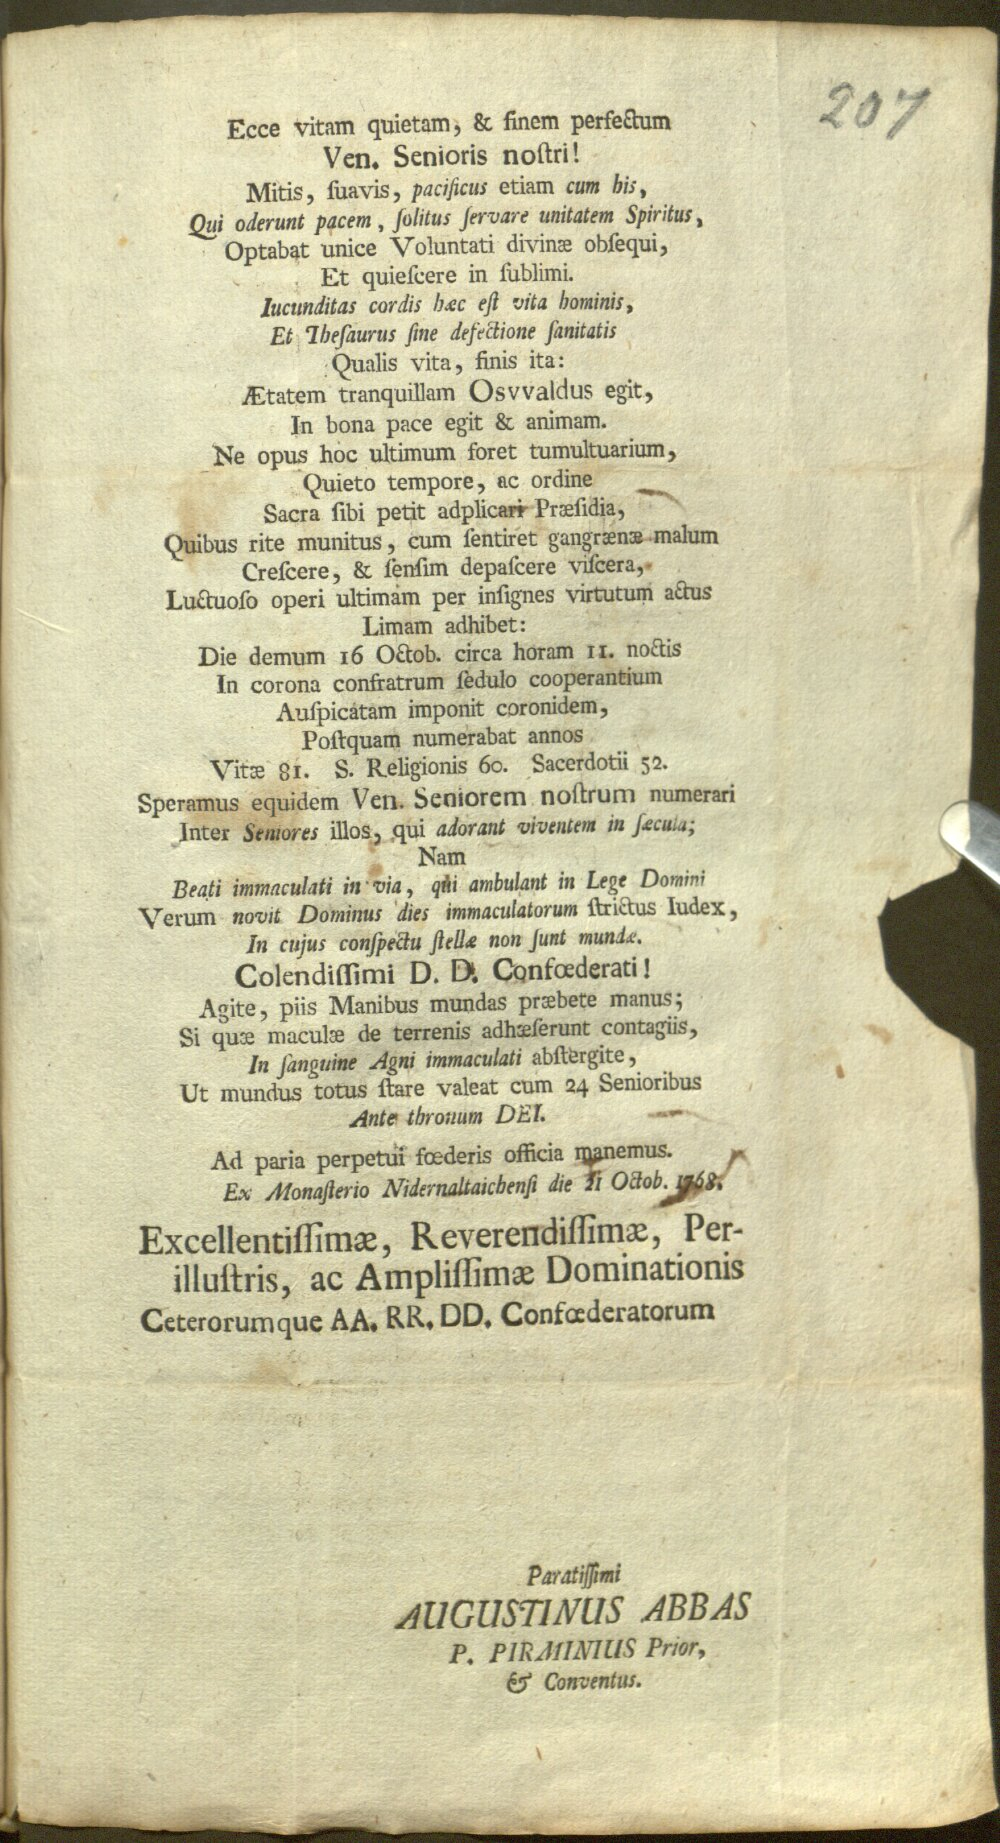 207
Ecce vitam quietam, & finem perfectum
Ven. Senioris noſtri!
Mitis, ſuavis, pacificus etiam cum his,
Qui oderunt pacem, ſolitus ſervare unitatem Spiritus,
Optabat unice Voluntati divinæ obſequi,
Et quieſcere in ſublimi.
Iucunditas cordis hæc eſt vita hominis,
Et Theſaurus ſine defectione ſanitatis
Qualis vita, finis ita:
Ætatem tranquillam Osvvaldus egit,
In bona pace egit & animam.
Ne opus hoc ultimum foret tumultuarium,
Quieto tempore, ac ordine
Sacra ſibi petit adplicari Præſidia,
Quibus rite munitus, cum ſentiret gangrænæ malum
Creſcere, & ſenſim depaſcere viſcera,
Luctuoſo operi ultimam per inſignes virtutum actus
Limam adhibet:
Die demum 16 Octob. circa horam 11. noctis
In corona confratrum ſedulo cooperantium
Auſpicatam imponit coronidem,
Poſtquam numerabat annos
Vitæ 81. S. Religionis 60. Sacerdotii 52.
Speramus equidem Ven. Seniorem noſtrum numerari
Inter Seniores illos, qui adorant viventem in ſæcula;
Nam
Beati immaculati in via, qui ambulant in Lege Domini
Verum novit Dominus dies immaculatorum ſtrictus Iudex,
In cujus conſpectu ſtellæ non ſunt mundæ.
Colendiſſimi D. D. Confœderati!
Agite, piis Manibus mundas præbete manus;
Si quæ maculæ de terrenis adhæſerunt contagiis,
In ſanguine Agni immaculati abſtergite,
Ut mundus totus ſtare valeat cum 24 Senioribus
Ante thronum DEI.
Ad paria perpetui fœderis officia manemus.
Ex Monaſterio Nidernaltaichenſi die 21 Octob. 1768.
Excellentiſſimæ, Reverendiſſimæ, Per-
illuſtris, ac Ampliſſimæ Dominationis
Ceterorumque AA. RR. DD. Confœderatorum
Paratiſſimi
AUGUSTINUS ABBAS
P. PIRMINIUS Prior,
& Conventus.